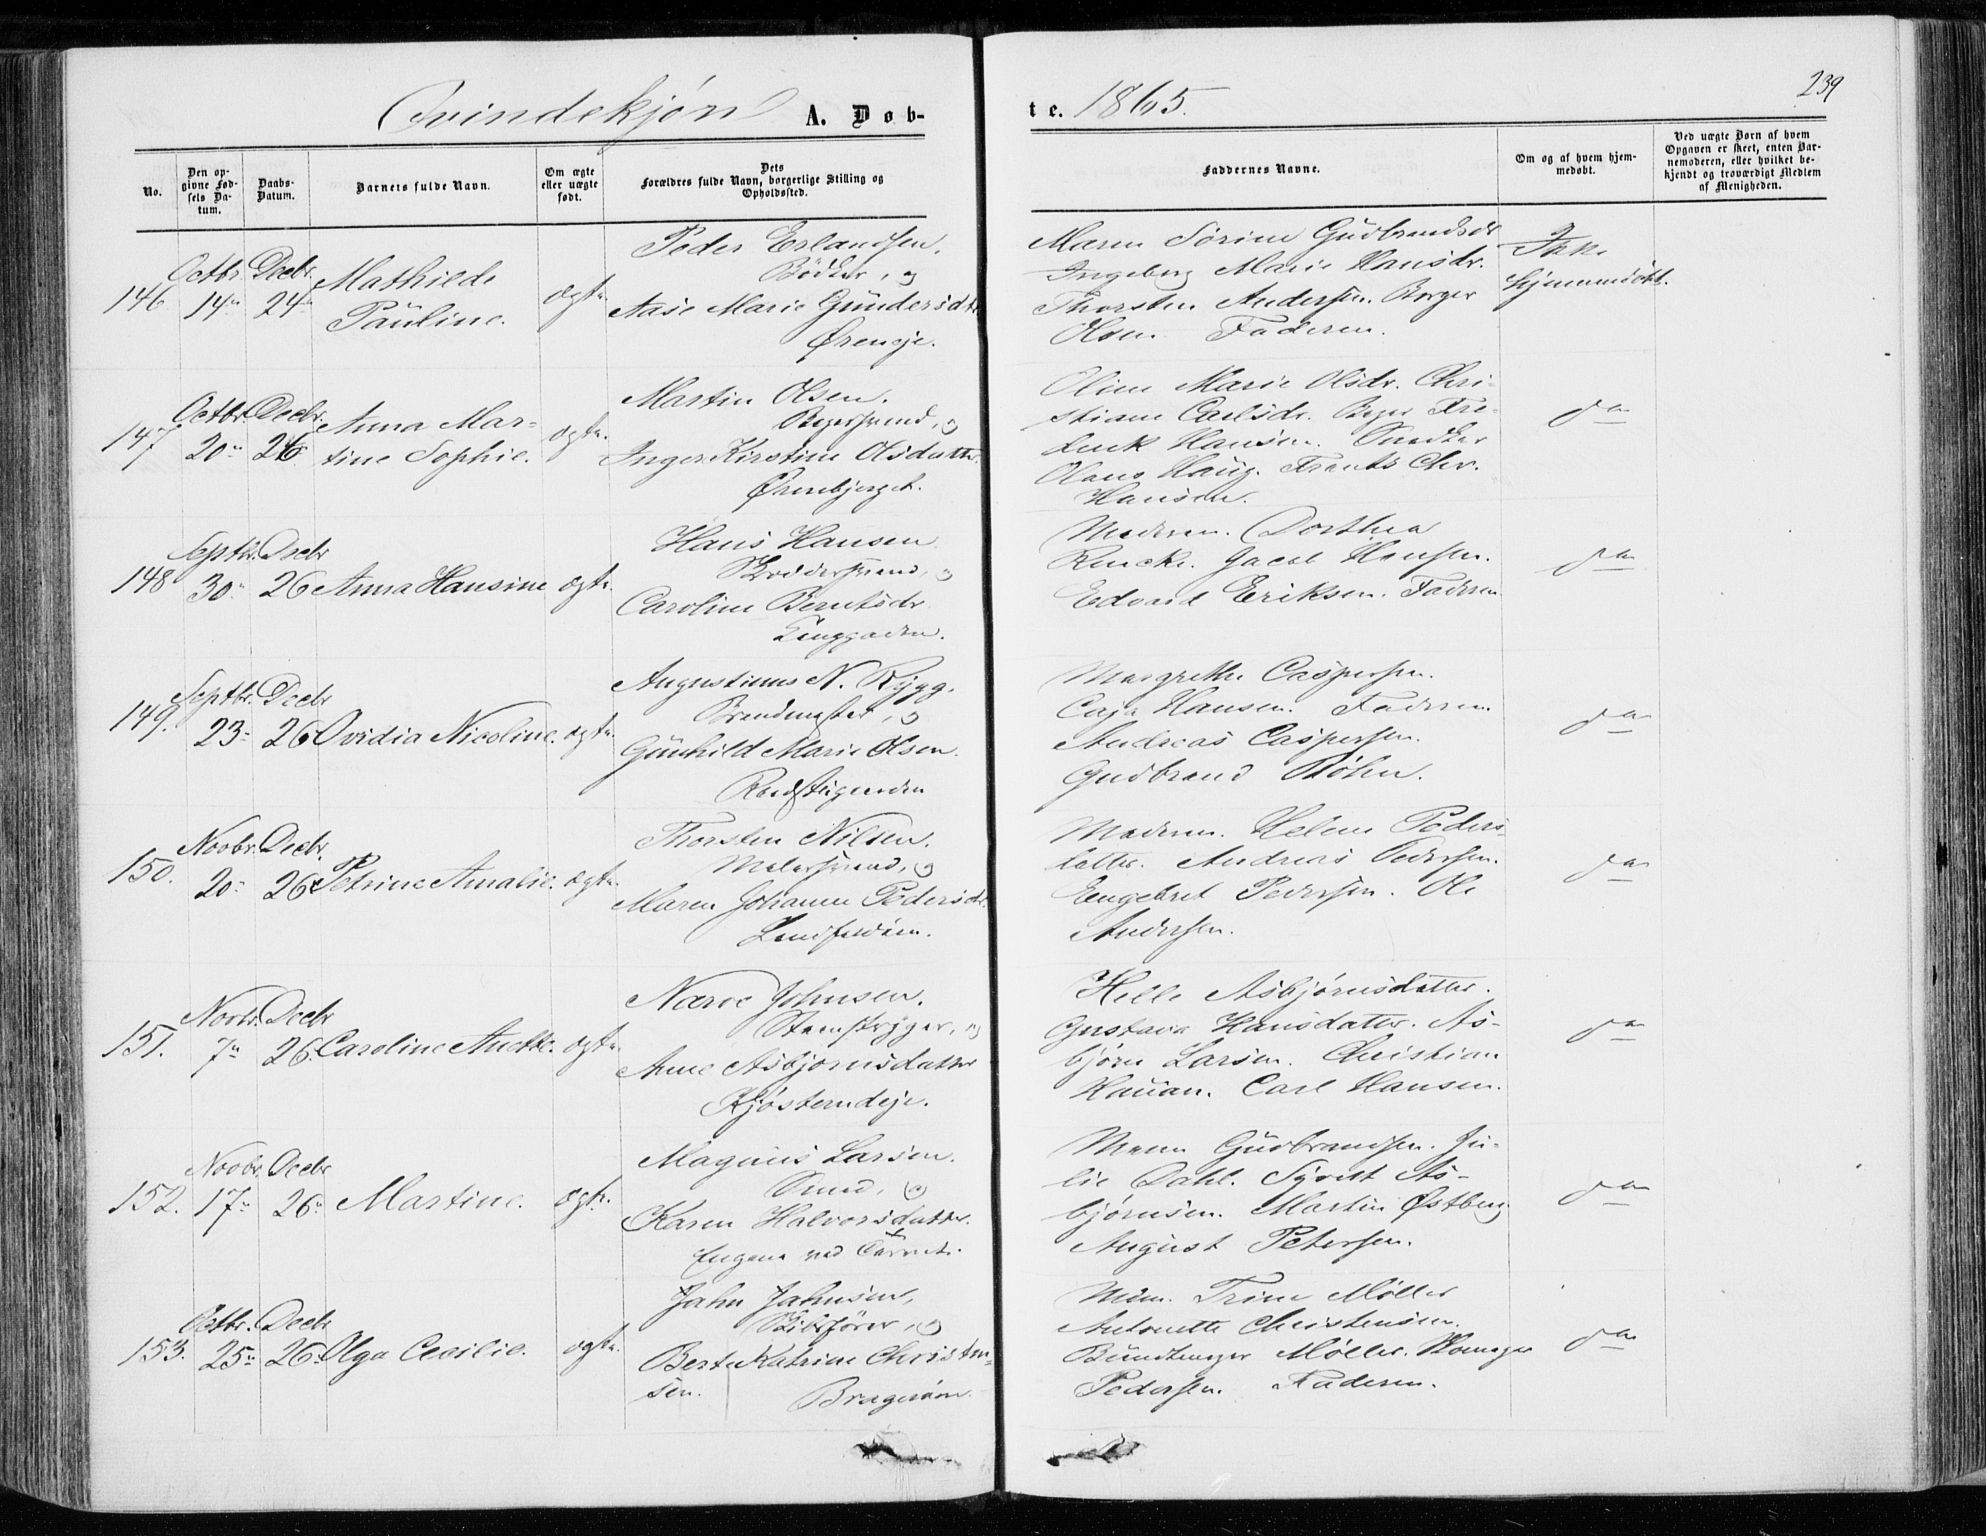 Qvindekjøn A. Døbte. 1865.
239
No.
Den opgivne Fødsels Datum.
Daabs-Datum.
Barnets fulde Navn.
Om ægte eller uægte født.
Dets Forældres fulde Navn, borgerlige Stilling og Opholdssted.
Faddernes Navne.
Om og af hvem hjemmedøbt.
Ved uægte Børn af hvem Opgaven er skeet, enten Barnemoderen, eller hvilket bekjendt og troværdigt Medlem af Menigheden.
146
Octbr. 14de
Decbr. 24de
Mathilde
Pauline.
ægte
Peder Erlandsen,
Bødker, og
Aase Marie Gundersdtr
Øreneje.
Maren Sørine Gudbrandsdr
Ingeborg Marie Hansdr.
Thorsten Andersen. Borger
Olsen. Faderen.
Ikke
hjemmedøbt.
147
Octbr. 20de
Decbr. 26
Anna Mar-
tine Sophie.
ægte.
Martin Olsen.
Bøgersvend, og
Inger Kirstine Olsdatter.
Ørenbjerget.
Oline Marie Olsdr. Chri-
stiane Carlsdr. Fre-
derik Hansen. Snedker
Olaus Haug. Frants Chr.
Hansen.
do
148
Septbr. 30de
Decbr 26
Anna Hansine
ægte.
Hans Hansen
og
Caroline Berntsdr.
Moderen. Dorthea
Jacob Hansen.
Edvard Eriksen. Faderen
do
149.
Septbr. 23
Decbr 26
Ovidia Nicoline.
ægte.
Augustinus N. Rygg.
Brandmester, og
Gunhild Marie Olsen.
Margrethe Caspersen.
Caja Hansen. Faderen.
Andreas Caspersen.
Gudbrand Bøhn.
do
150.
Novbr. 20
Decbr. 26
Petrine Amalie.
ægte.
Thorsten Nilsen.
Malersvend, og
Maren Johanne Pedersdr.
Landfaldøen.
Moderen. Helene Peders-
datter. Andreas Pedersen.
Engebret Pedersen. Ole
Andersen.
do
151.
Novbr. 7de
Decbr 26
Caroline Anette.
ægte.
Narve Johnsen.
og
Anne Asbjørnsdatter
Kjøsterudeje.
Helle Asbjørnsdatter.
Gustava Hansdatter. As-
bjørn Larsen. Christian
Hauan. Carl Hansen.
do
152.
Novbr. 17de
Decbr 26
Martine.
ægte.
Magnus Larsen.
Smed, og
Karen Halvorsdatter.
Engene ved Taarnet.
Maren Gudbrandsen. Ju-
lie Dahl. Syvert As-
bjørnsen. Martin Østberg
August Petersen.
do
153.
Octbr. 25de
Decbr 26
Olga Cecilie.
ægte.
John Johnsen,
og
Berte Katrine Christen-
sen.
Bragerøen.
Mdm. Trine Møller
Antonette Christensen.
Bundtmager Møller.
Pedersen. Faderen.
do